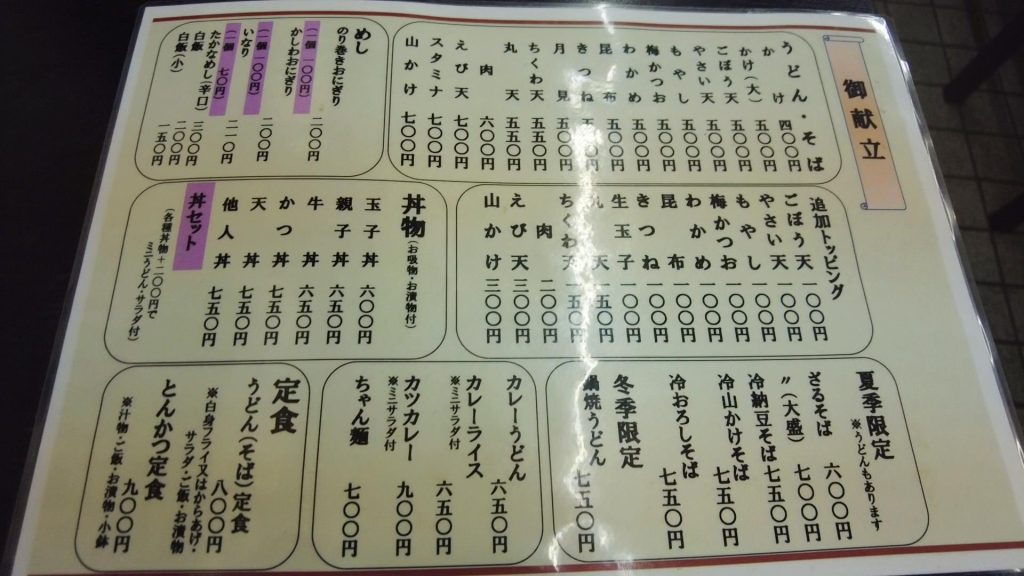 御献立
うどん・そば
かけ 四〇〇円
かけ(大) 五〇〇円
ごぼう天 五〇〇円
やさい天 五〇〇円
もやし 五〇〇円
梅かつお 五〇〇円
わかめ 五〇〇円
昆布 五〇〇円
きつね 五〇〇円
月見 五〇〇円
ちくわ天 五五〇円
丸天 五五〇円
肉 六〇〇円
えび天 七〇〇円
スタミナ 七〇〇円
山かけ 七〇〇円
めし
のり巻きおにぎり
(一個 一〇〇円) 二〇〇円
かしわおにぎり
(一個 一〇〇円) 二〇〇円
いなり
(一個 七〇円) 二一〇円
たかなめし(辛口) 三〇〇円
白飯 二〇〇円
白飯(小) 一五〇円
追加トッピング
ごぼう天 一〇〇円
やさい天 一〇〇円
もやし 一〇〇円
梅かつお 一〇〇円
わかめ 一〇〇円
昆布 一〇〇円
きつね 一〇〇円
生玉子 一〇〇円
丸天 一五〇円
ちくわ天 一五〇円
肉 二〇〇円
えび天 三〇〇円
山かけ 三〇〇円
丼物(お吸物・お漬物付)
玉子丼 六〇〇円
親子丼 六五〇円
牛丼 六五〇円
かつ丼 七五〇円
天丼 七五〇円
他人丼 七五〇円
丼セット
(各種丼物+二〇〇円で
ミニうどん・サラダ付)
夏季限定
※うどんもあります
ざるそば 六〇〇円
〃(大盛) 七〇〇円
冷納豆そば 七五〇円
冷山かけそば 七五〇円
冷おろしそば 七五〇円
冬季限定
鍋焼うどん 七五〇円
カレーうどん 六五〇円
カレーライス 六五〇円
※ミニサラダ付
カツカレー 九〇〇円
※ミニサラダ付
ちゃん麺 七〇〇円
定食
うどん(そば)定食 八〇〇円
※白身フライ又はからあげ・
サラダ・ご飯・お漬物
とんかつ定食 九〇〇円
※汁物・ご飯・お漬物・小鉢